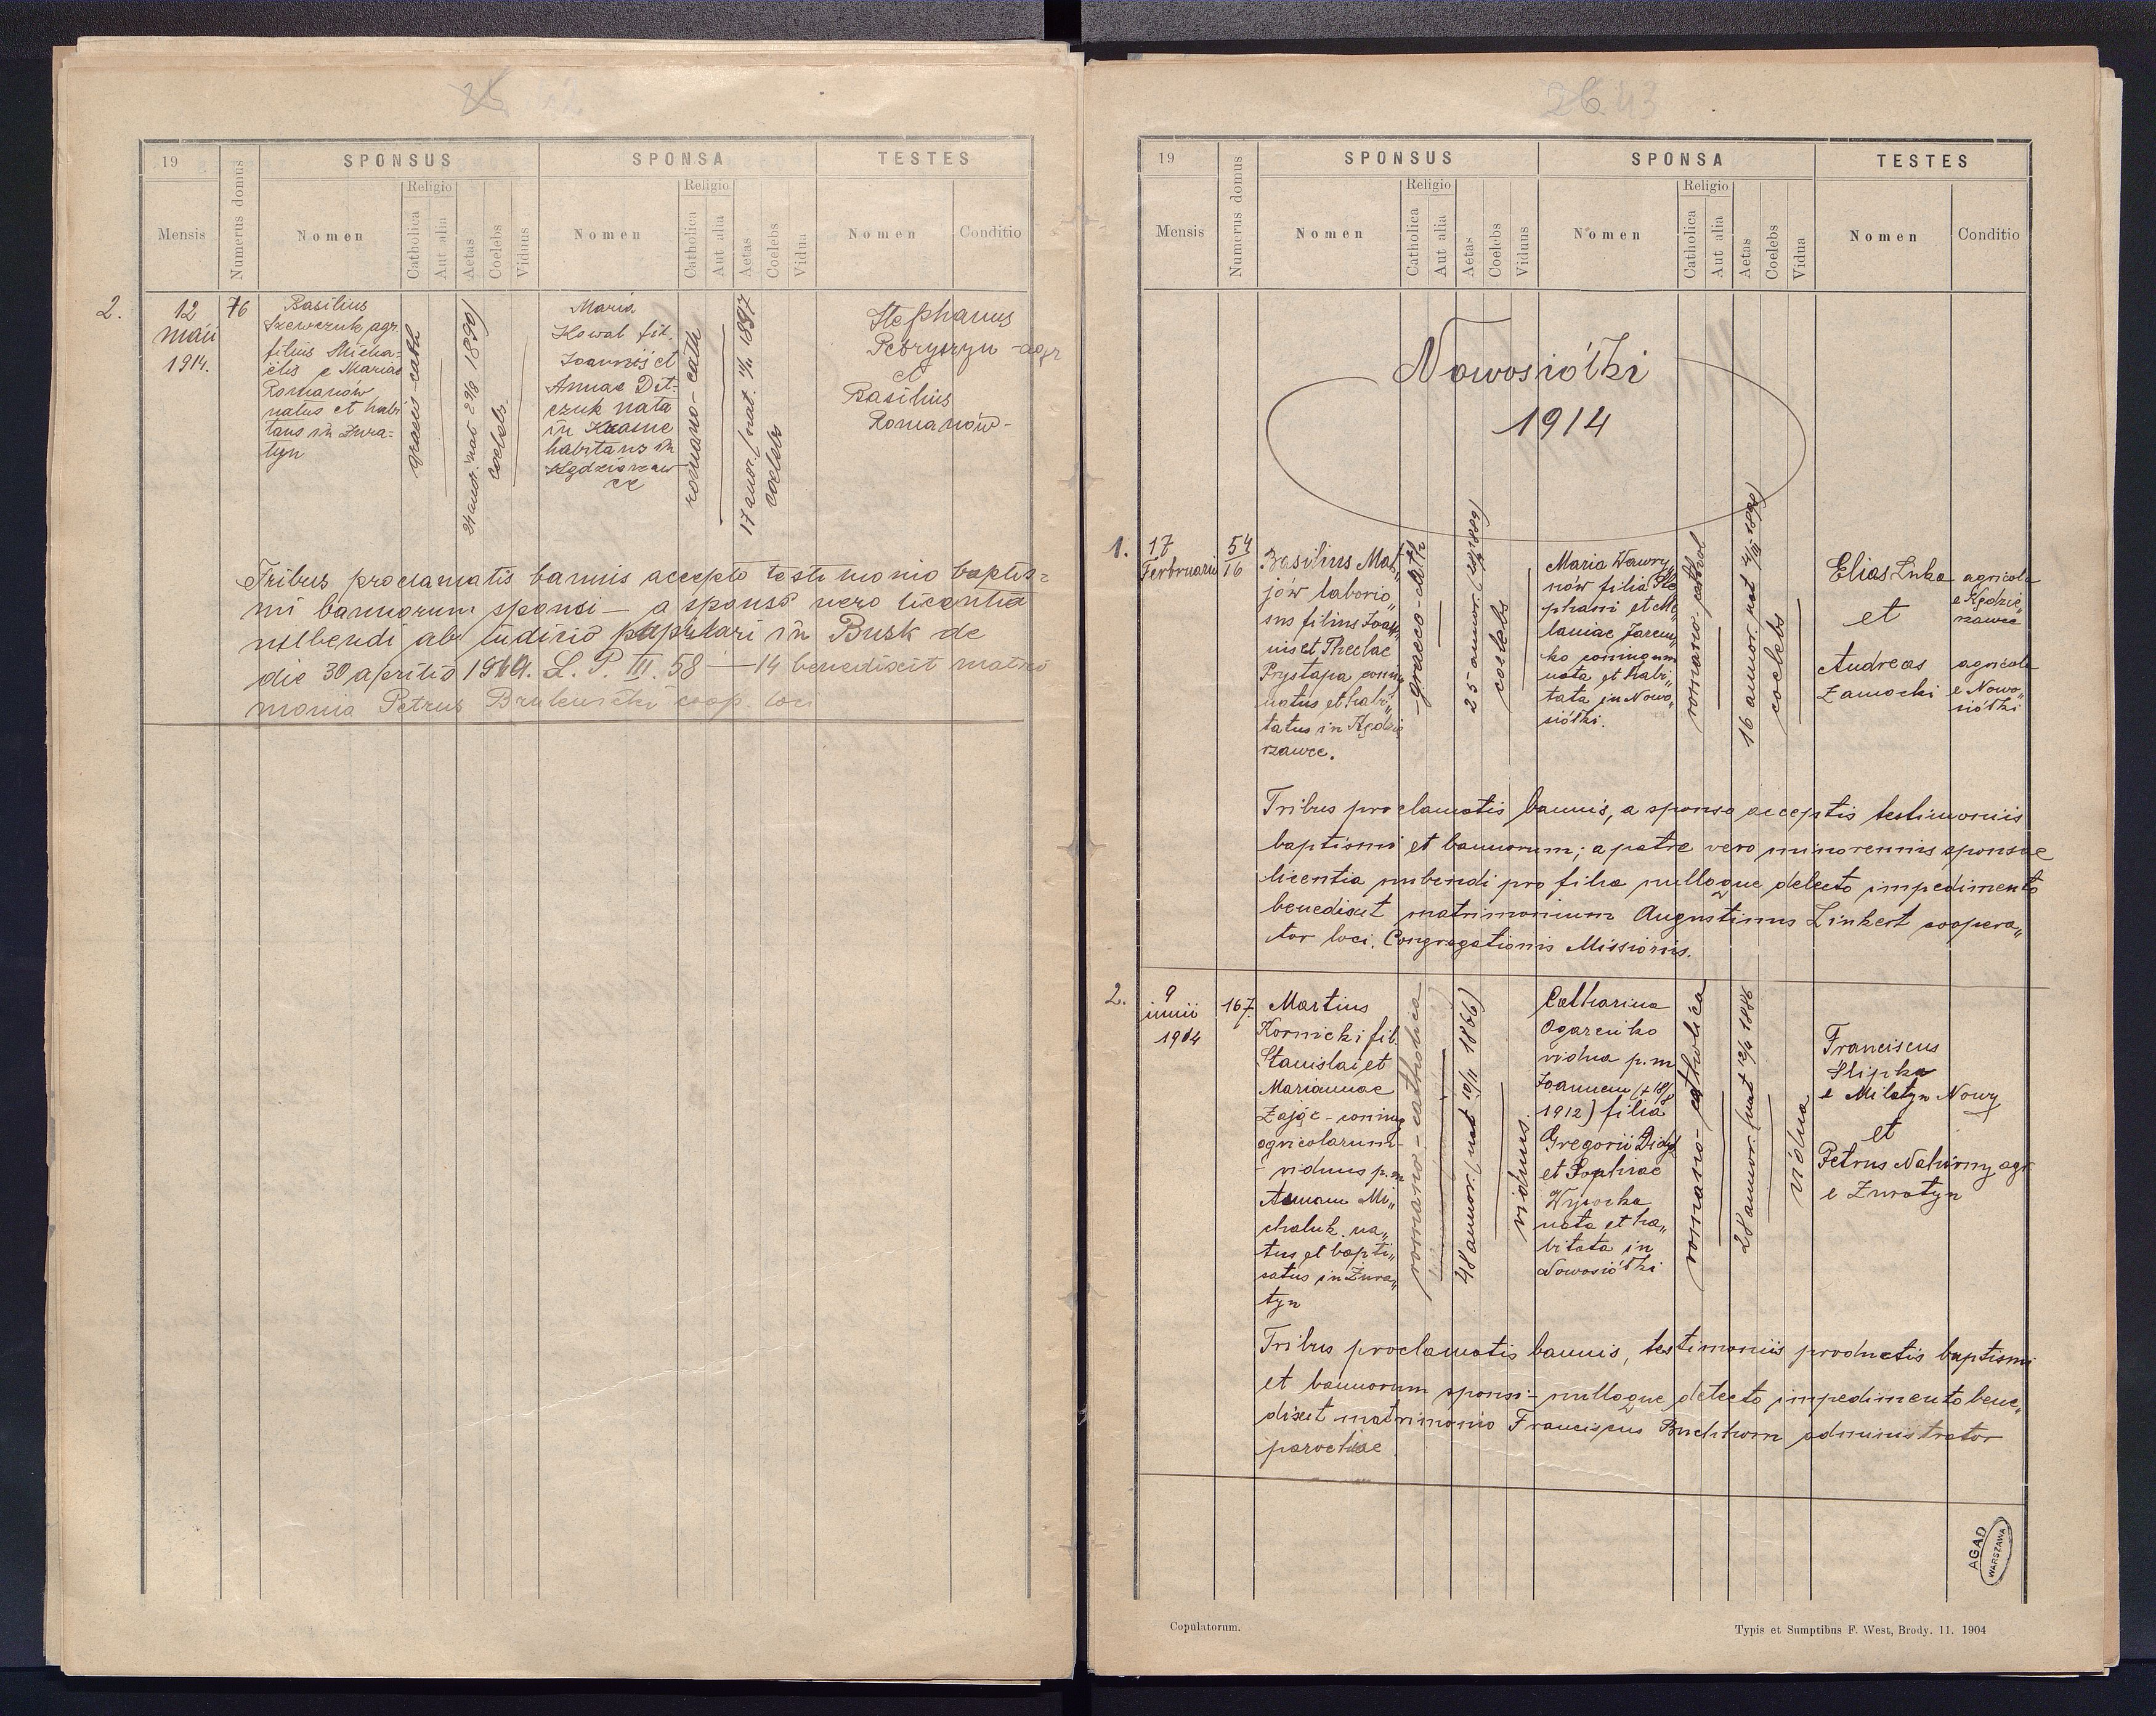 19
SPONSUS
SPONSA
TESTES
Mensis
Numerus domus
Nomen
Religio
Catholica
Aut alia
Aetas
Coelebs
Viduus
Nomen
Religio
Catholica
Aut alia
Aetas
Coelebs
Vidua
Nomen
Conditio
2.
12
Maii
1914.
76
Basilius
Szewczuk agr.
filius Micha=
elis e Mariae
Romanów
natus et habi
tans in Żura=
tyn
graeco-cath
coelebs.
Maria
Kowal fil.
Joannis et
Annae Dit=
czuk nata
in Krasne
habitans in
romano-cath
17 annor. (nat. 1897
coelebs
Stephanus
Petryszyn - agr
et
Basilius
Romanów -
Tribus proclamatis bannis accepto testimonio baptis=
mi bannorum sponsi - a sponsa vero licentia
nubendi ab iudicio pupilari in Busk de
die 30 aprilis 1914. L. P. III. 58 - 14 benedixit matri
monia Petrus coop. loci
26 43
19
SPONSUS
SPONSA
TESTES
Mensis
Numerus domus
Nomen
Religio
Catholica
Aut alia
Aetas
Coelebs
Viduus
Nomen
Religio
Catholica
Aut alia
Aetas
Coelebs
Vidua
Nomen
Conditio
Nowosiółki
1914
1.
17
Februarii
54
16
Basilius Mat„
jów laborio„
sus filius Joan„
nis et Theclae
Prystapa coni„
natus et habi„
tatus in Kędzie
rzawce.
graeco-cath
25 annor. (1889)
coelebs
Maria Wawry„
nów filia Ste
phani et Me„
laniae Jarem„
ko coniugum
nata et habi„
tata in Nowo„
siółki.
romano-cathol
16 annor. nat 1898)
coelebs
Elias Luka
et
Andreas
Zamocki
agricola
e Kędzie„
rzawce
agricola
e Nowo„
siółki
Tribus proclamatis bannis, a sponso acceptis testimoniis
baptismi et bannorum; a patre vero minorennis sponsae
licentia nubendi pro filia nulloque detecto impedimento
benedixit matrimonium Augustinus Linkert coopera„
tor loci, Congregationis Missionis.
2.
9
iunii
1914
167.
Martius
Kornicki fil.
Stanislai et
Mariannae
Zając - coniug
agricolarum -
viduus p. m
Annam Mi„
chaluk. na„
tus et bapti„
satus in Żura„
tyn
romano-catholica
48 annor. (nat 10/11 1866)
viduus.
Catharina
Ogarenko
vidua p. m
Joannem (+ 18/8
1912) filia
Gregorii
et Sophiae
Wysocka
nata et ha„
bitata in
Nowosiółki
romano-catholica
28 annor. (nat 1886
vidua
Franciscus
Ślipka
e Milatyn Nowy
et
Petrus Nahirny agr
e Żuratyn
Tribus proclamatis bannis, testimoniis productis baptismi
et bannorum sponsi - nulloque detecto impedimento bene„
dixit matrimonio Franciscus Buchhorn administrator
parochiae
AGAD
WARSZAWA
Copulatorum.
Typis et Sumptibus F. West, Brody. 11. 1904